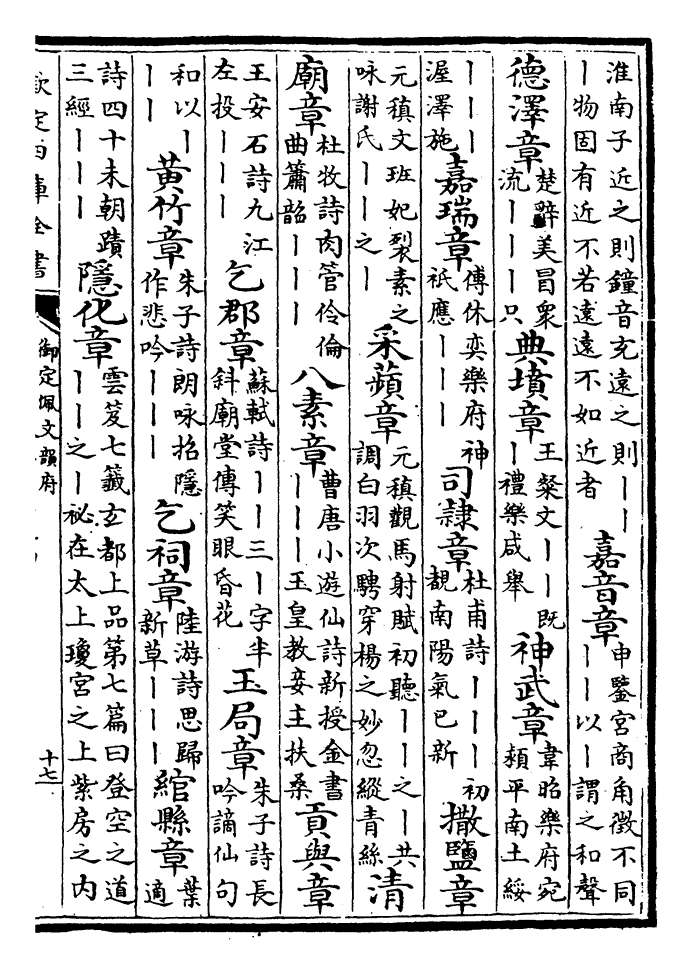 淮南子近之則鐘音充遠之則｜｜｜物固有近不若遠遠不如近者 嘉音章 申鑒宮商角徵不同｜｜以｜謂之和聲
德澤章 楚辭美冒衆流｜｜｜只 典墳章 王粲文｜｜既｜禮樂咸舉 神武章 韋昭樂府宛潁平南土綏
｜｜｜渥澤施 嘉瑞章 傅休奕樂府神祇應｜｜｜ 司隸章 杜甫詩｜｜｜初覩南陽氣已新 撒鹽章
元稹文班妃裂素之咏謝氏｜｜之｜ 采蘋章 元稹觀馬射賦初聽｜｜之｜共調白羽次騁穿楊之妙忽縱青絲 清
廟章 杜牧詩肉管伶倫曲簫韶｜｜｜ 八素章 曹唐小遊仙詩新授金書｜｜｜玉皇教妾主扶桑 貢輿章
王安石詩九江左投｜｜ 乞郡章 蘇軾詩｜｜三｜字半斜廟堂傳笑眼昏花 玉局章 朱子詩長吟謫仙句
和以｜｜｜ 黃竹章 朱子詩朗咏招隱作悲吟｜｜｜ 乞祠章 陸游詩思歸新草｜｜｜ 綰縣章 葉適
詩四十未朝蹟三經｜｜｜ 隱化章 雲笈七籤玄都上品第七篇曰登空之道｜｜之｜祕在太上瓊宮之上紫房之內
欽定四庫全書 御定佩文韻府 十七